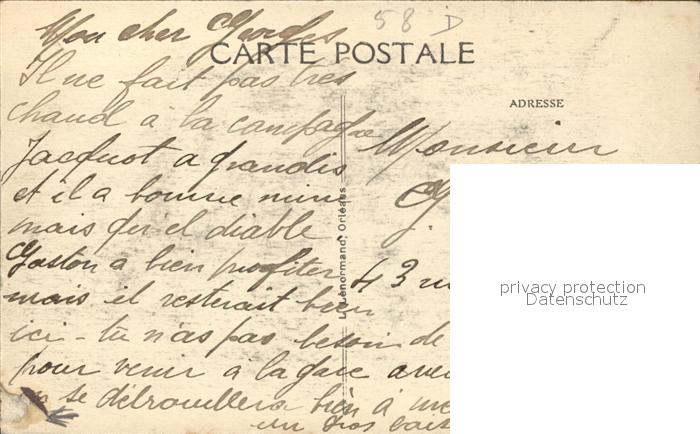 58 D
Mon cher Georges
CARTE POSTALE
Il ne fait pas très
chaud à la campagne
ADRESSE
Monsieur
Jacquot a grandis
et il a bonne mine
mais qu'el diable
Gaston a bien profiter
43
mais il resterait bien
ici - tu n'as pas besoin de
pour venir à la gare avec
se débrouillera bien à
un gros
Lenormand, Orléans
privacy protection
Datenschutz